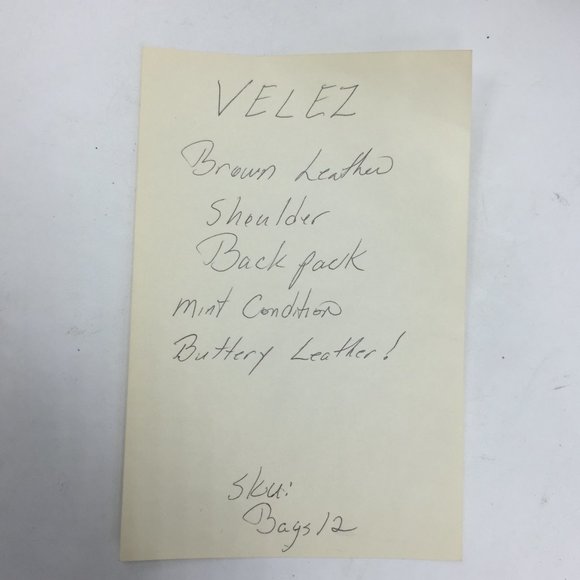 VELEZ
Brown Leather
Shoulder
Back pack
Mint Condition
Buttery Leather!
Sku:
Bags 12